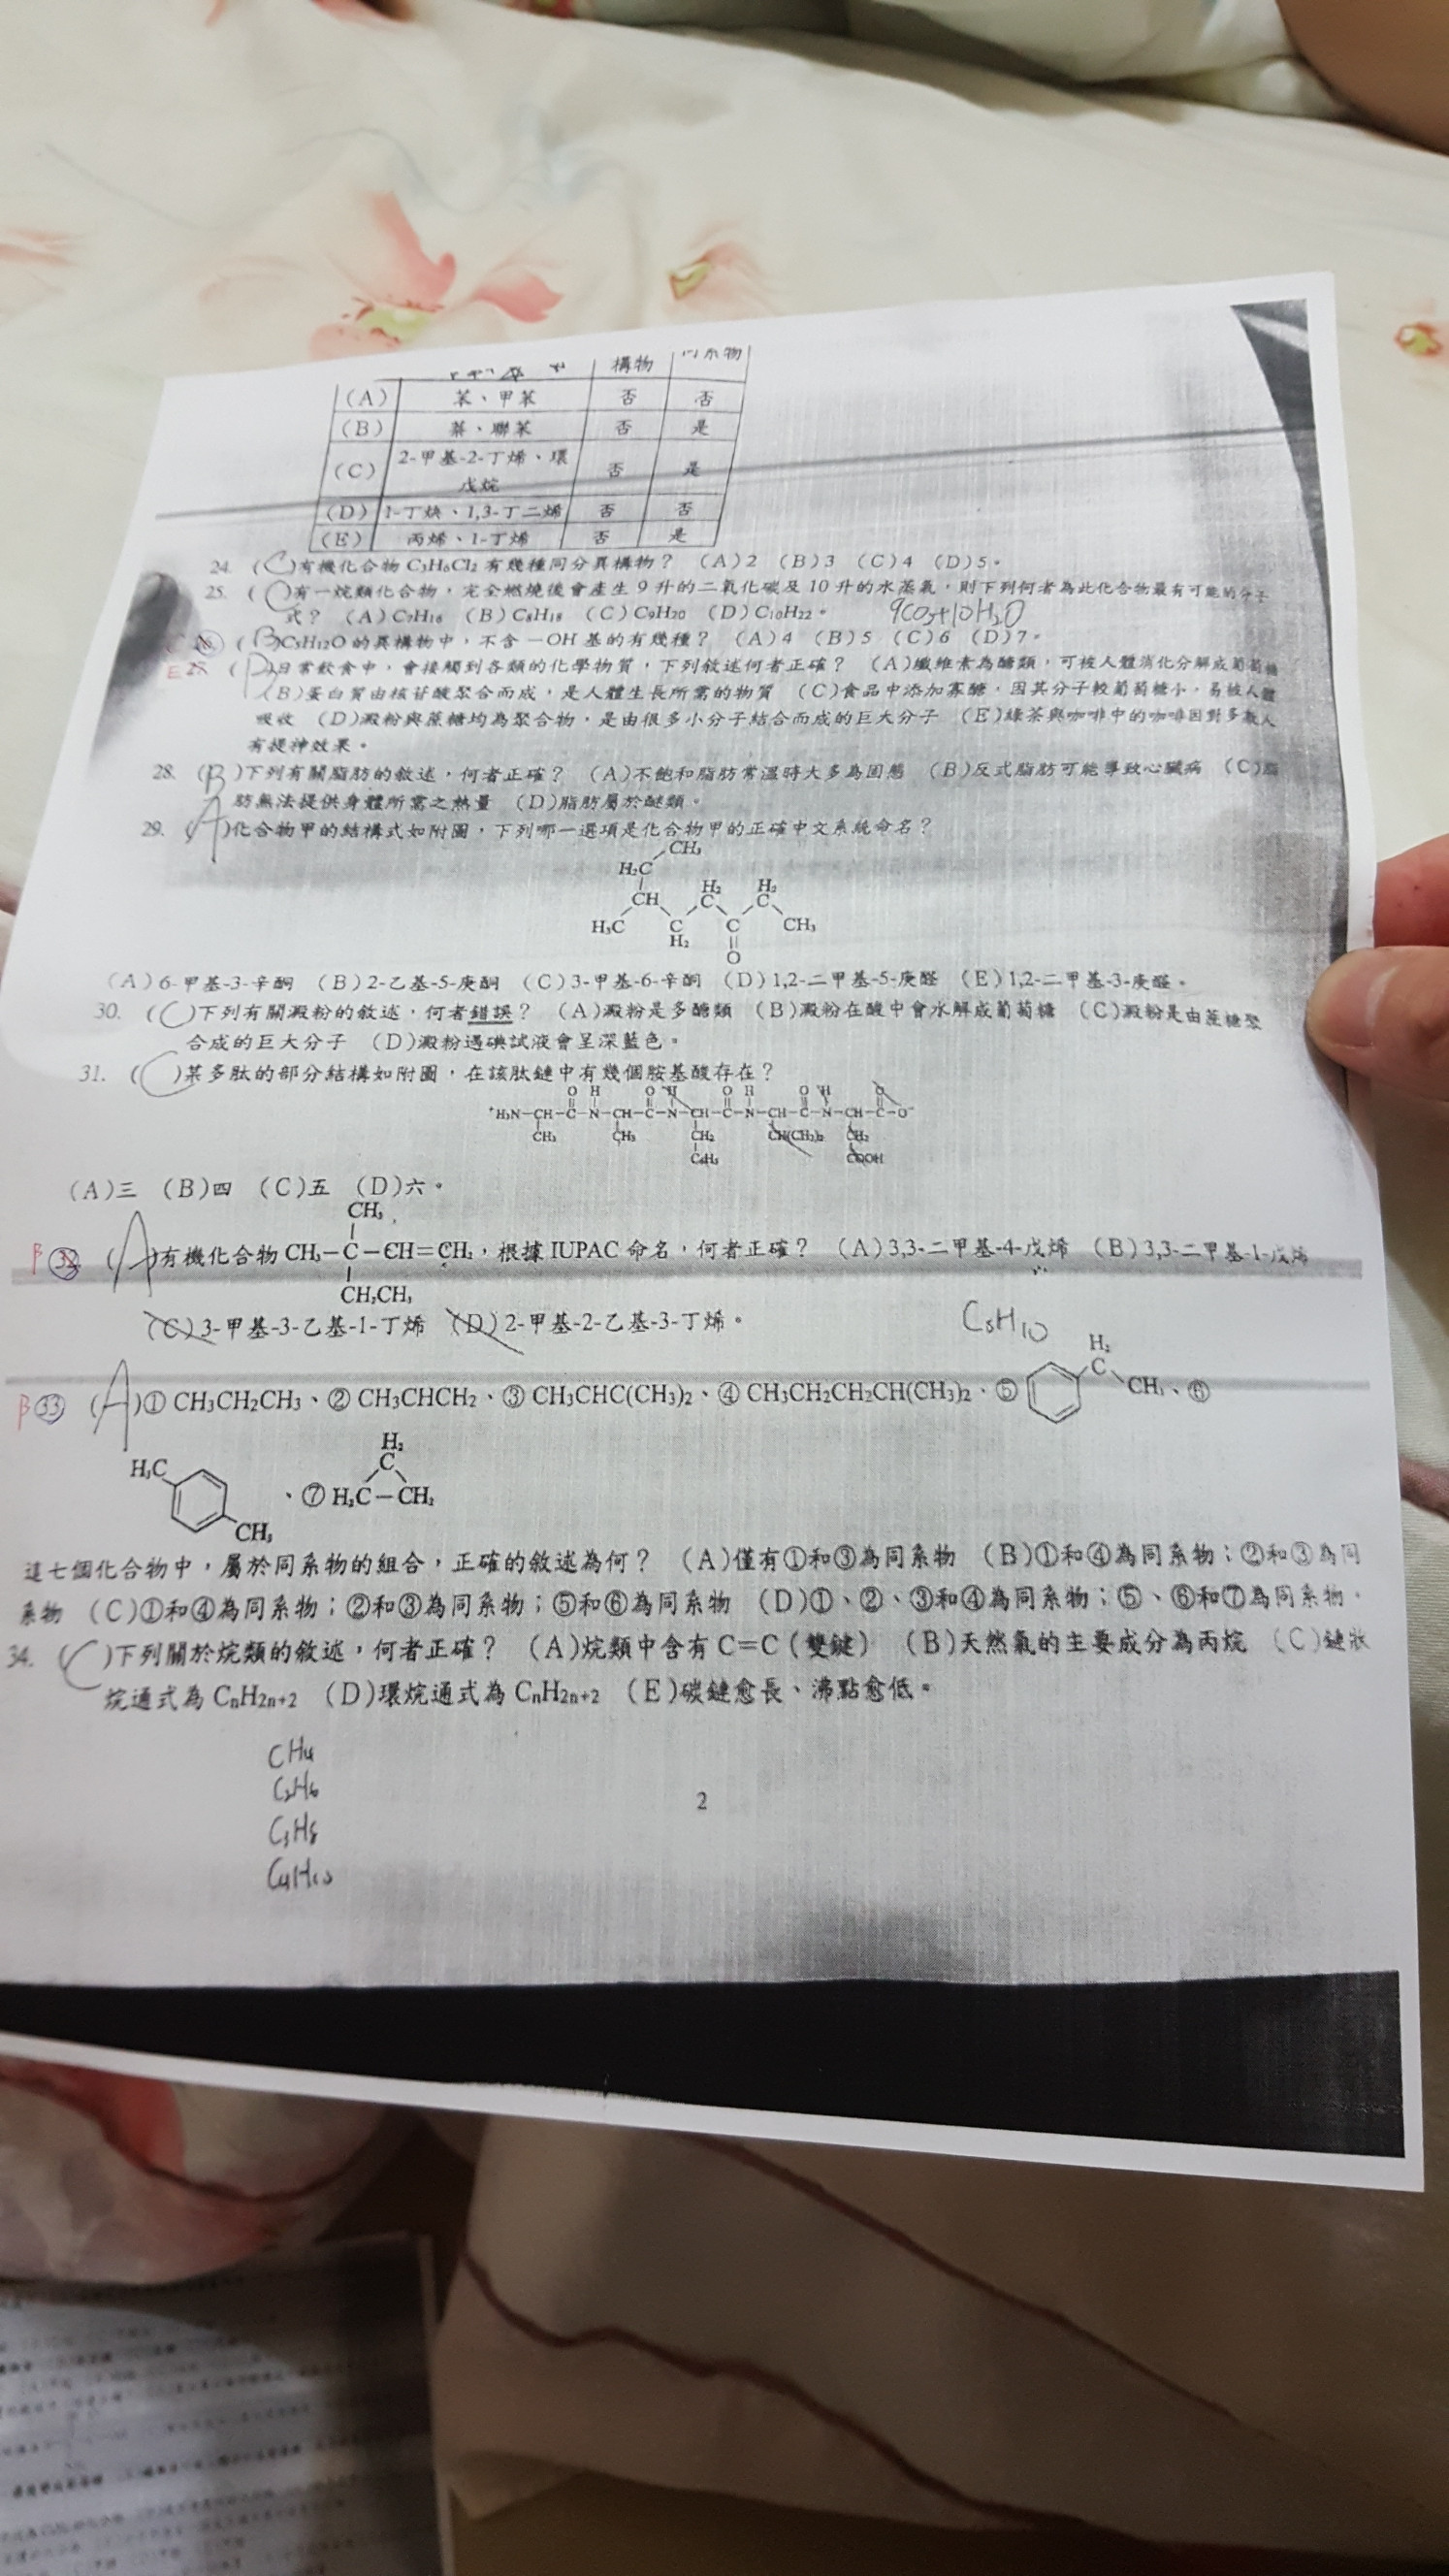 構物
(A) 苯、甲苯 否 否
(B) 聯苯 否 是
(C) 2-甲基-2-丁烯、環戊烷 否 是
(D) 1-丁炔、1,3-丁二烯 否 否
(E) 丙烯、1-丁烯 否 是
24. (C)有機化合物 C₃H₆Cl₂ 有幾種同分異構物? (A)2 (B)3 (C)4 (D)5。
25. (C)有一烷類化合物,完全燃燒後會產生 9 升的二氧化碳及 10 升的水蒸氣,則下列何者為此化合物最有可能的分子
式? (A)C₇H₁₆ (B)C₈H₁₈ (C)C₉H₂₀ (D)C₁₀H₂₂。 9CO₂+10H₂O
C (B)C₅H₁₂O 的異構物中,不含-OH 基的有幾種? (A)4 (B)5 (C)6 (D)7。
E (D)日常飲食中,會接觸到各類的化學物質,下列敘述何者正確? (A)纖維素為醣類,可被人體消化分解成葡萄糖
(B)蛋白質由核苷酸聚合而成,是人體生長所需的物質 (C)食品中添加寡醣,因其分子較葡萄糖小,易被人體
吸收 (D)澱粉與蔗糖均為聚合物,是由很多小分子結合而成的巨大分子 (E)綠茶與咖啡中的咖啡因對多數人
有提神效果。
28. (B)下列有關脂肪的敘述,何者正確? (A)不飽和脂肪常溫時大多為固態 (B)反式脂肪可能導致心臟病 (C)脂
肪無法提供身體所需之熱量 (D)脂肪屬於醚類。
29. (A)化合物甲的結構式如附圖,下列哪一選項是化合物甲的正確中文系統命名?
CH₃
H₂C
CH H₂C H₂C
H₃C C C CH₃
H₂ O
(A)6-甲基-3-辛酮 (B)2-乙基-5-庚酮 (C)3-甲基-6-辛酮 (D)1,2-二甲基-5-庚醛 (E)1,2-二甲基-3-庚醛。
30. (C)下列有關澱粉的敘述,何者錯誤? (A)澱粉是多醣類 (B)澱粉在酸中會水解成葡萄糖 (C)澱粉是由蔗糖聚
合成的巨大分子 (D)澱粉遇碘試液會呈深藍色。
31. (C)某多肽的部分結構如附圖,在該肽鏈中有幾個胺基酸存在?
O H O H O H O H O
⁺H₃N-CH-C-N-CH-C-N-CH-C-N-CH-C-N-CH-C-O⁻
CH₃ CH₃ CH₂ CH(CH₃)₂ CH₂
C₆H₅ COOH
(A)三 (B)四 (C)五 (D)六。
CH₃
B 32 (A)有機化合物 CH₃-C-CH=CH₂,根據 IUPAC 命名,何者正確? (A)3,3-二甲基-4-戊烯 (B)3,3-二甲基-1-戊烯
CH₂CH₃
(C)3-甲基-3-乙基-1-丁烯 (D)2-甲基-2-乙基-3-丁烯。
C₅H₁₀
B 33 (A)① CH₃CH₂CH₃、② CH₃CHCH₂、③ CH₃CHC(CH₃)₂、④ CH₃CH₂CH₂CH(CH₃)₂、⑤ H₂C CH₃、⑥
H₃C CH₃、⑦ H₂C H₂C-CH₂
這七個化合物中,屬於同系物的組合,正確的敘述為何? (A)僅有①和③為同系物 (B)①和④為同系物;②和③為同
系物 (C)①和④為同系物;②和③為同系物;⑤和⑥為同系物 (D)①、②、③和④為同系物;⑤、⑥和⑦為同系物。
34. (C)下列關於烷類的敘述,何者正確? (A)烷類中含有 C=C(雙鍵) (B)天然氣的主要成分為丙烷 (C)鏈狀
烷通式為 CnH2n+2 (D)環烷通式為 CnH2n+2 (E)碳鏈愈長、沸點愈低。
CH₄
C₂H₆
C₃H₈
C₄H₁₀
2